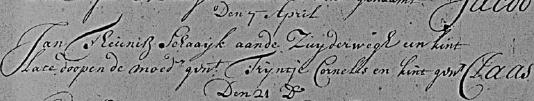 Den 7 April
Jan Reiniss Schaaijk aande Zuyderwegh een kint
late doopen de moedr gent. Tryntje Cornelis en kint gent Claas
Den 21 Do